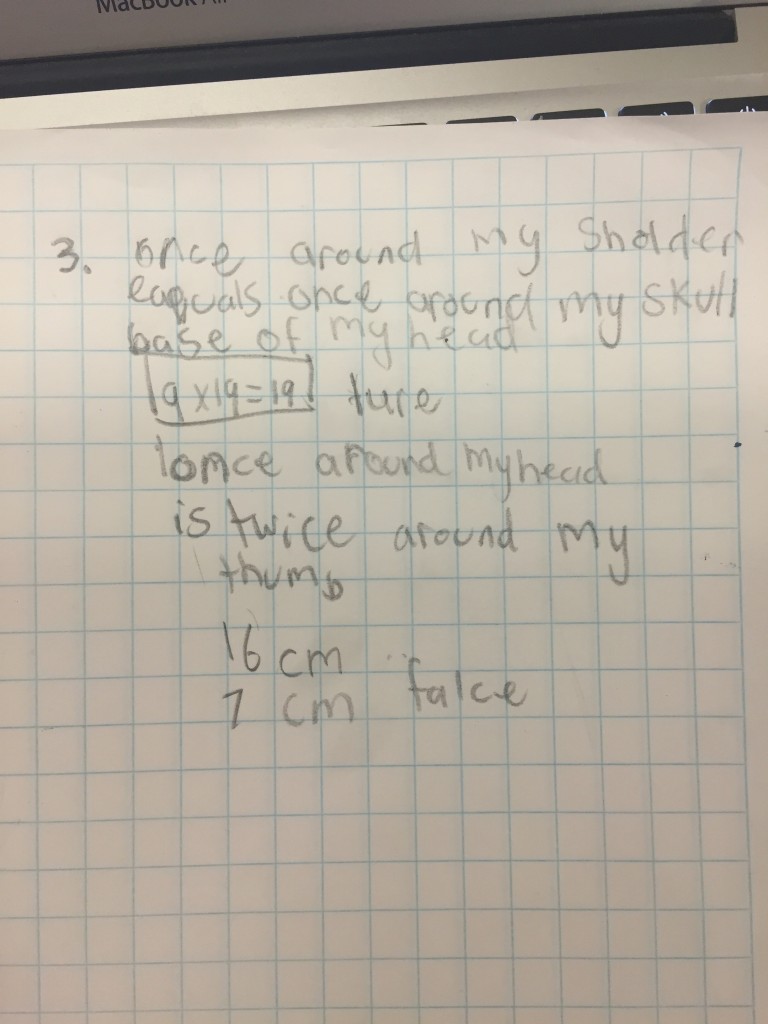 MacBook Air
3. once around my Sholder
eaquals once around my skull
base of my head
19x19=19 ture
1once around my head
is twice around my
thumb
16 cm
7 cm falce